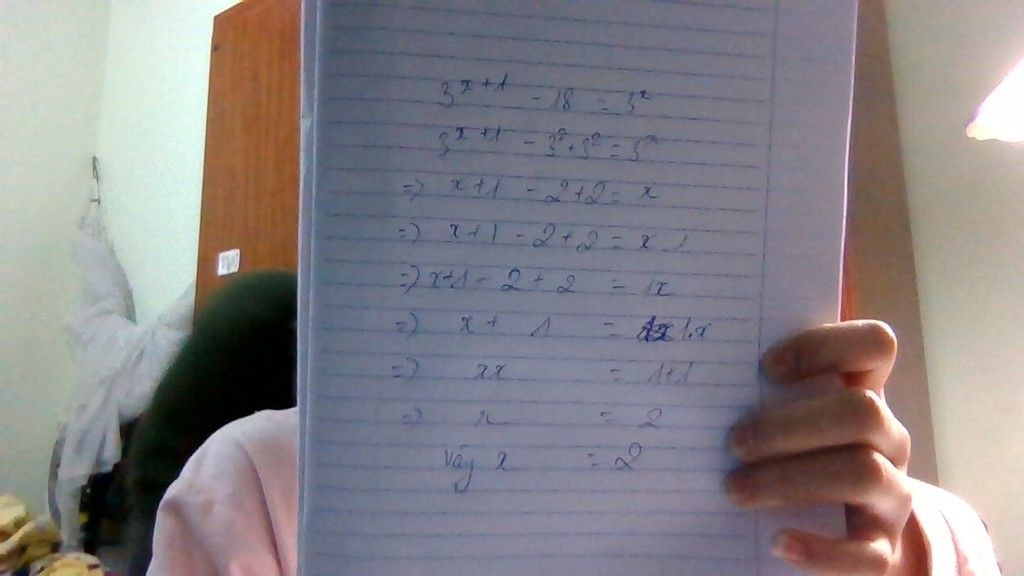 3^{x+1} - 18 = 3^x
3^{x+1} - 3^2 + 3^2 = 3^x
=> x+1 - 2+2 = x
=> x+1 - 2+2 = x 1
=> x+1 - 2 + 2 = 1x
=> x + 1 = 1.x
=> xx = 1+1
=> x = 2
Vậy x = 2